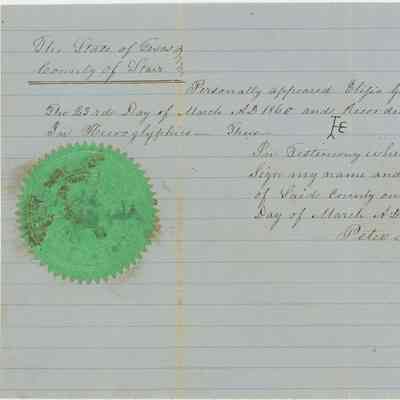 The State of Texas
County of Starr
Personally appeared
The 23rd Day of March A.D 1860 and Recorde
In Hieroglyphics — Thus — IE
In Testimony whe
Sign my name and
of Said County on
Day of March A.D
Peter